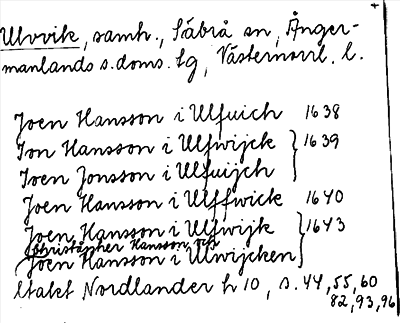 Ulvvik, samh., Säbrå sn, Ånger-
manlands s.doms. tg, Västernorrl. l.
Joen Hansson i Ulfuich 1638
Ion Hansson i Ulfwijck } 1639
Ioen Jonsson i Ulfuijch
Joen Hansson i Ulffwick 1640
Joen Hansson i Ulfwijk } 1643
Christopher Hansson ibs
Joen Hansson i Ulwijcken
Utakt Nordlander h 10, s. 44, 55, 60
82, 93, 96